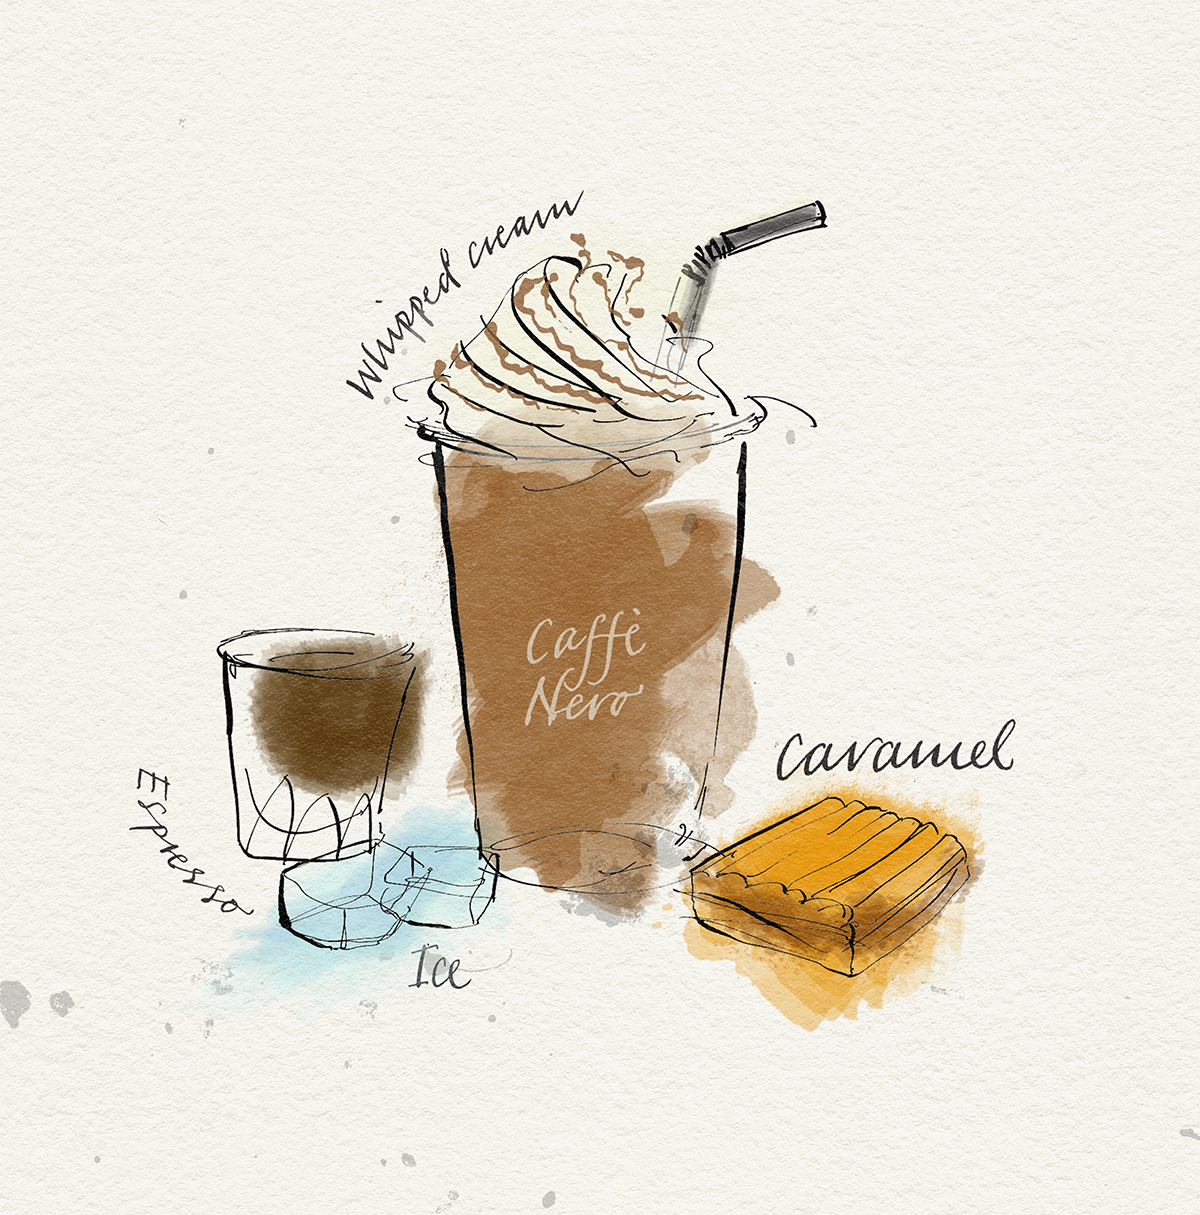 Whipped cream
Caffè
Nero
Caramel
Espresso
Ice